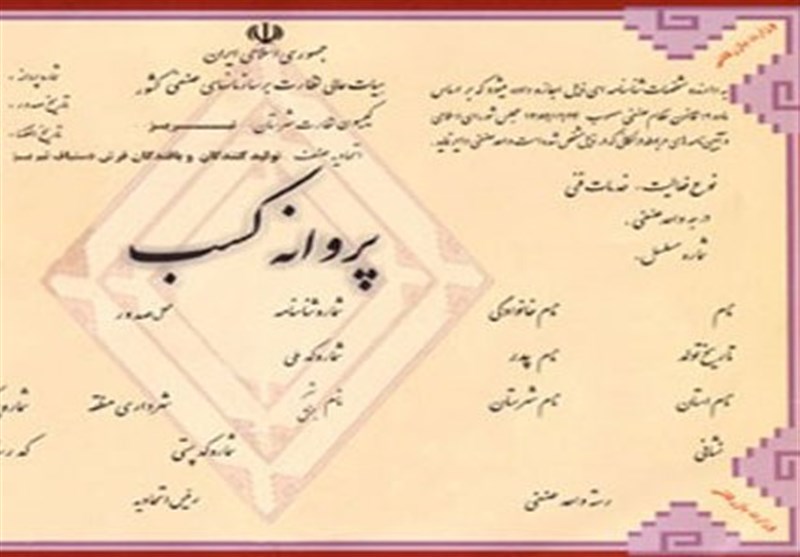 جمهوری اسلامی ایران
هیات عالی نظارت بر سازمانهای صنفی کشور
کمیسیون نظارت شهرستان : تبریز
اتحادیه صنف : تولید کنندگان و بافندگان فرش دستباف تبریز
شماره پروانه :
تاریخ صدور :
تاریخ انقضاء :
به دارنده مشخصات شناسنامه ای ذیل اجازه داده میشود که بر اساس
ماده قانون نظام صنفی مصوب مجلس شورای اسلامی
و آیین نامه های مربوطه در محلی که در ذیل مشخص شده است واحد صنفی دایر نماید.
نوع فعالیت : خدمات فنی
درجه واحد صنفی :
شماره مسلسل :
پروانه کسب
نام نام خانوادگی شماره شناسنامه محل صدور
تاریخ تولد نام پدر شماره کد ملی
نام استان نام شهرستان نام بخش شهرداری منطقه
نشانی شماره کد پستی
رسته واحد صنفی رئیس اتحادیه
وزارت بازرگانی
وزارت بازرگانی